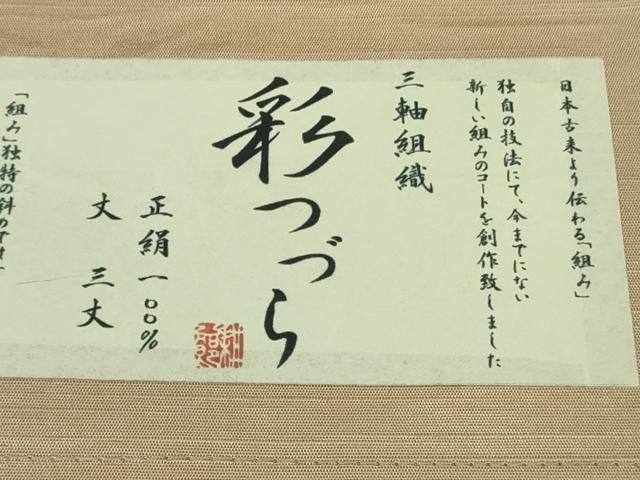 日本古来より伝わる「組み」
独自の技法にて、今までにない
新しい組みのコートを創作致しました
三軸組織
彩つづら
正絹一〇〇%
丈 三丈
「組み」独特の斜めです